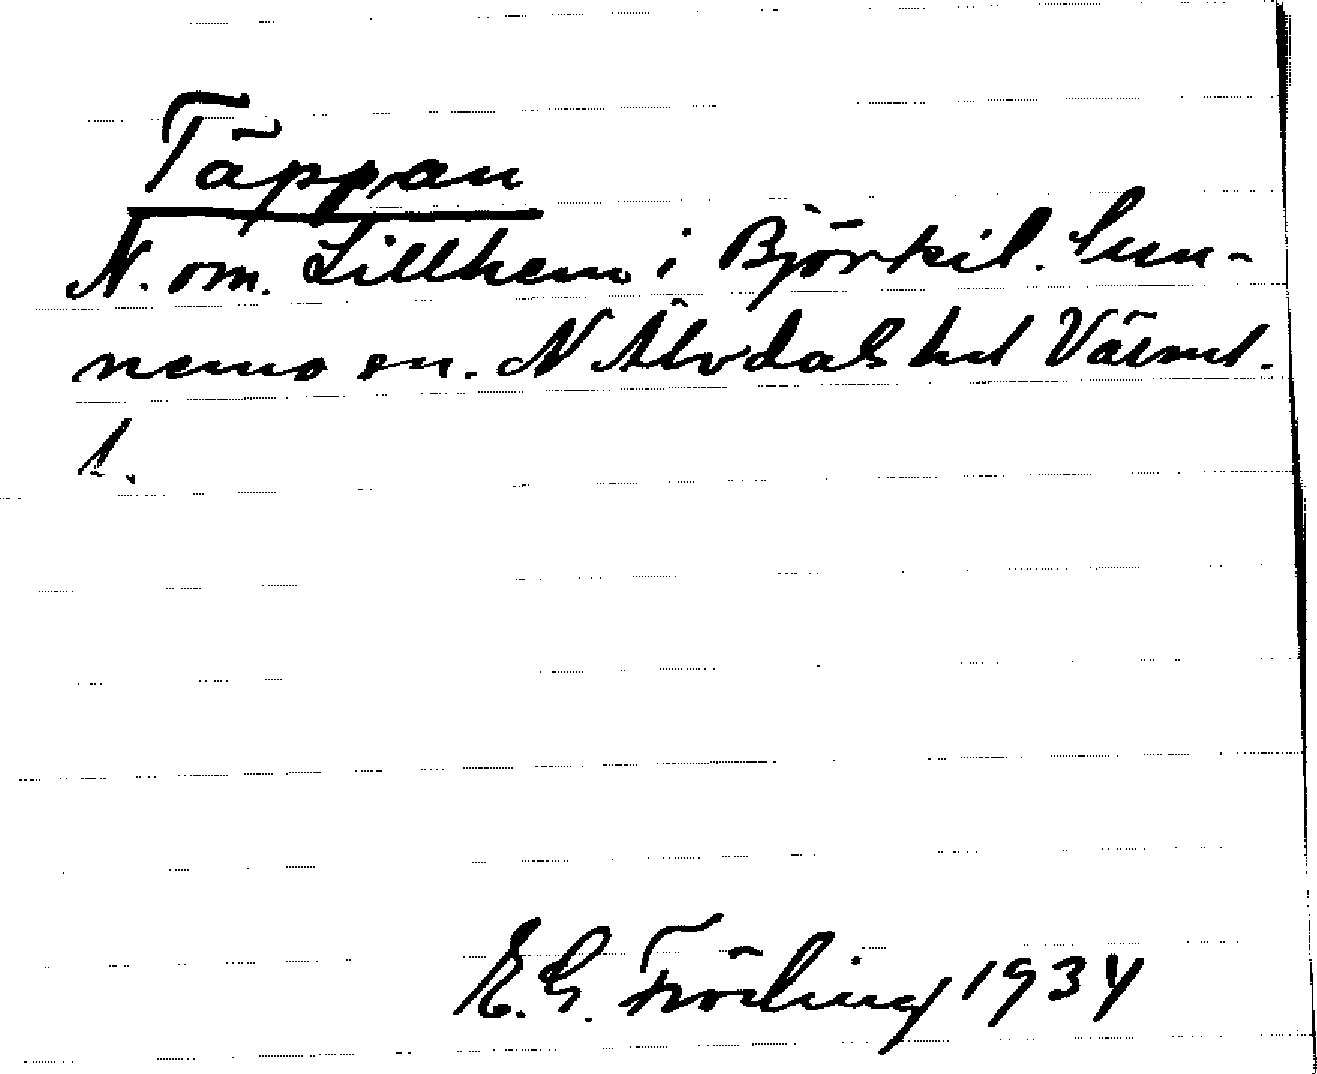 Täppan
N. om. Lillhem i Björkil. Sun-
nemo sn. N Älvdals hd Värml.
l.
E. G. Fröling 1934